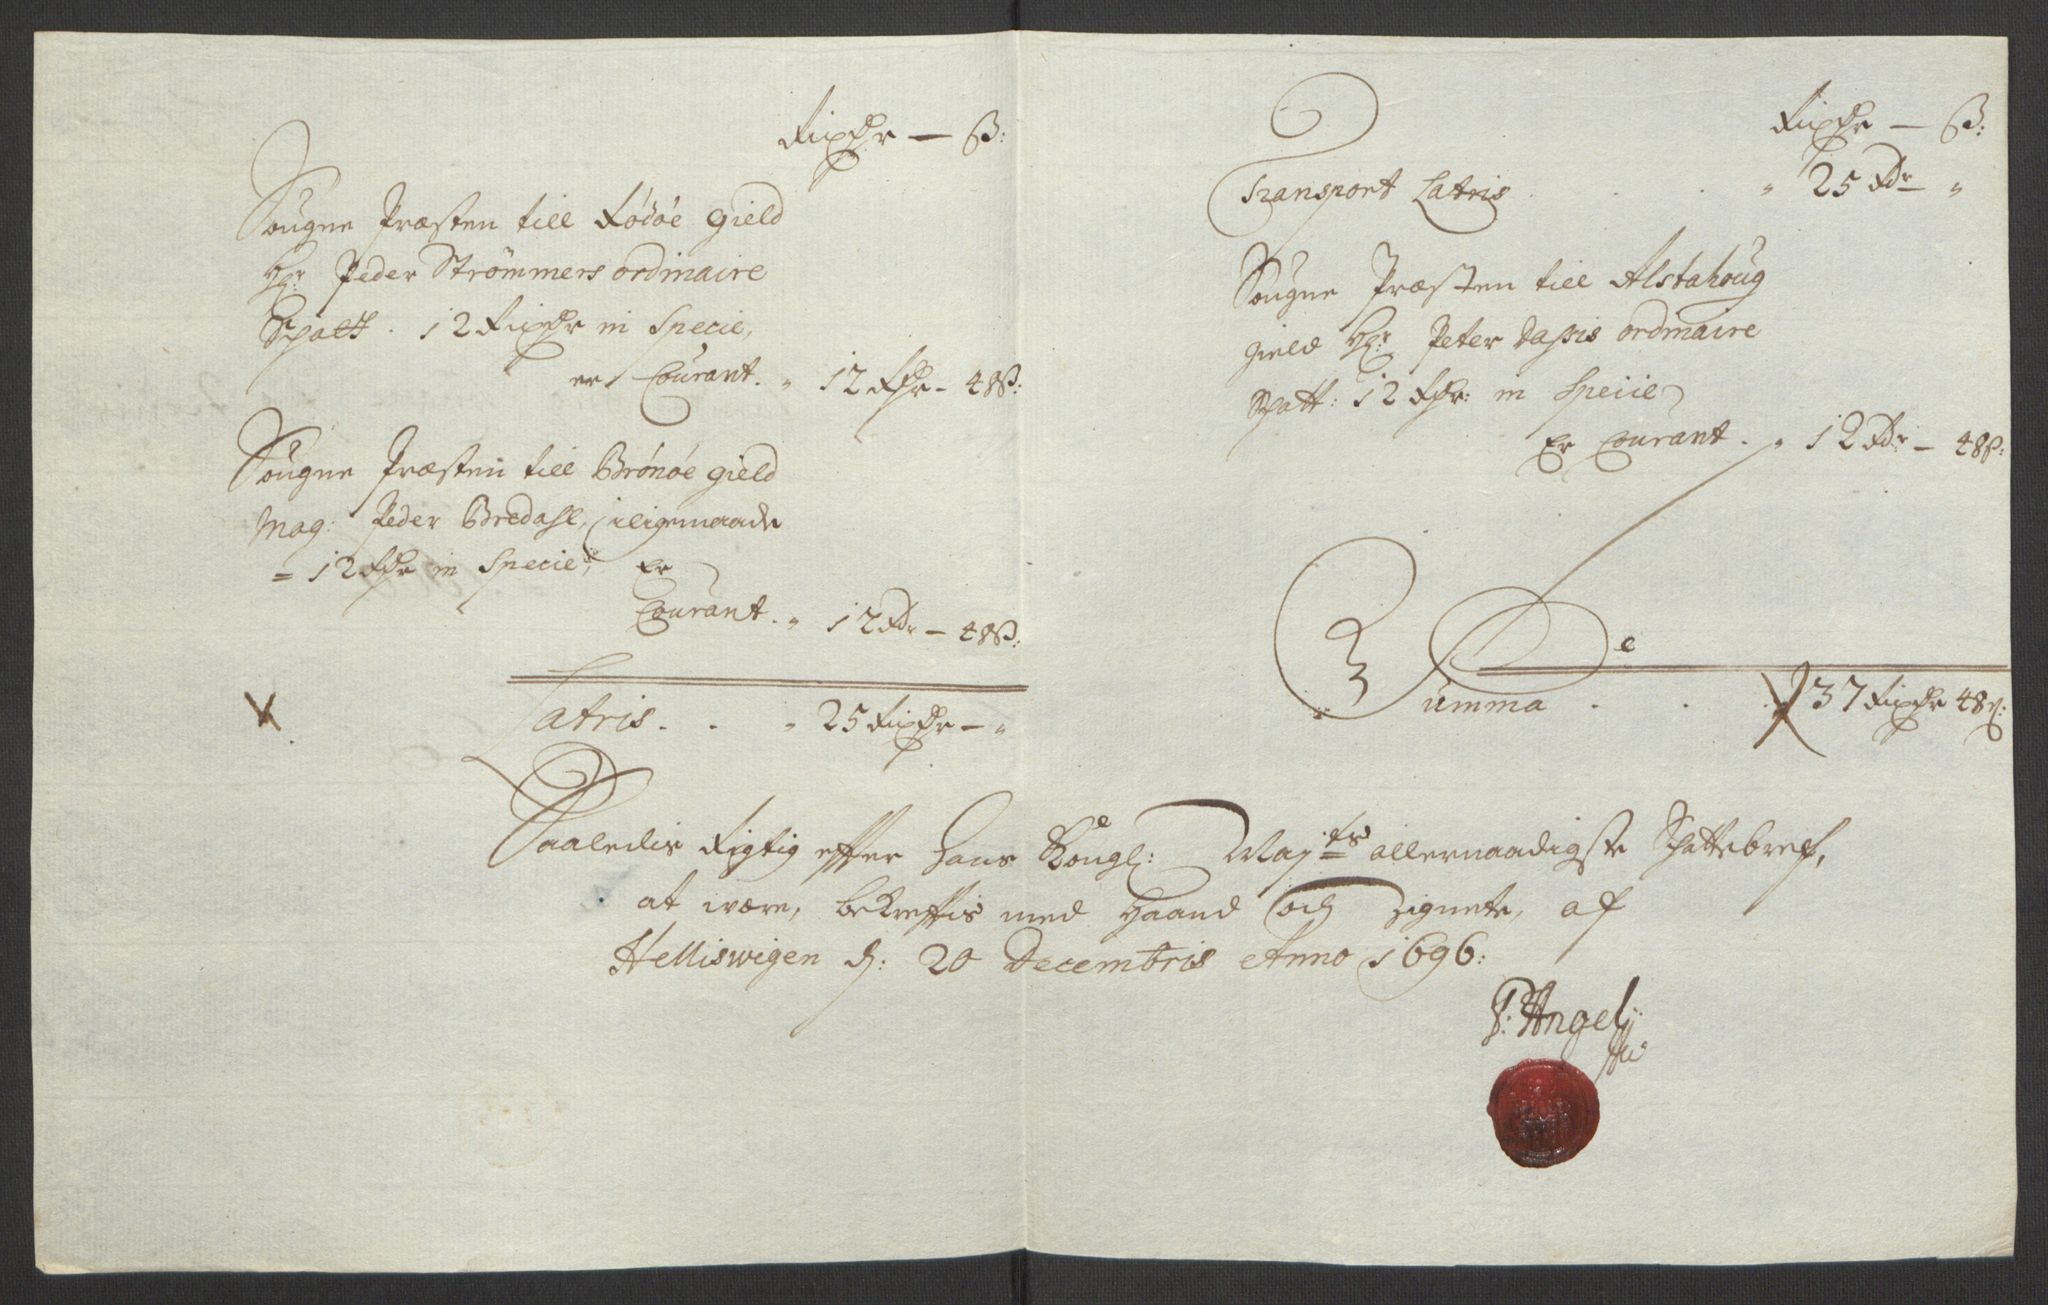 Rixdlr — ß:
Sougne Præsten till Rödöe gield
Hr: Peder Strömmers ordinaire
Schatt . 12 Rixdlr in Specie,
er Courant. „ 12 Rdlr - 48ß:
Sougne Præsten till Brönöe gield
Mag: Peder Bredahl, iligemaade
= 12 Rdlr in Specie, Er
Courant. „ 12 Rdr - 48ß:
Latris . . „ 25 Rixdlr - „
Rixdlr — ß:
Transport Latris . . . „ 25 Rdr „
Sougne Præsten till Alstahoug
gield Hr: Peter Dassis ordinaire
Schatt: 12 Rdlr: in Specie
Er Courant . „ 12 Rdr - 48ß:
Summa . . . 37 Rixdlr 48ß:
Saaledis Rigtig effter Hans Kongl: Mayts allernaadigste Schattebref,
at være, bekreffis med Haand och Zignete, af
Helliswigen d: 20 Decembris Anno 1696:
P: Angell